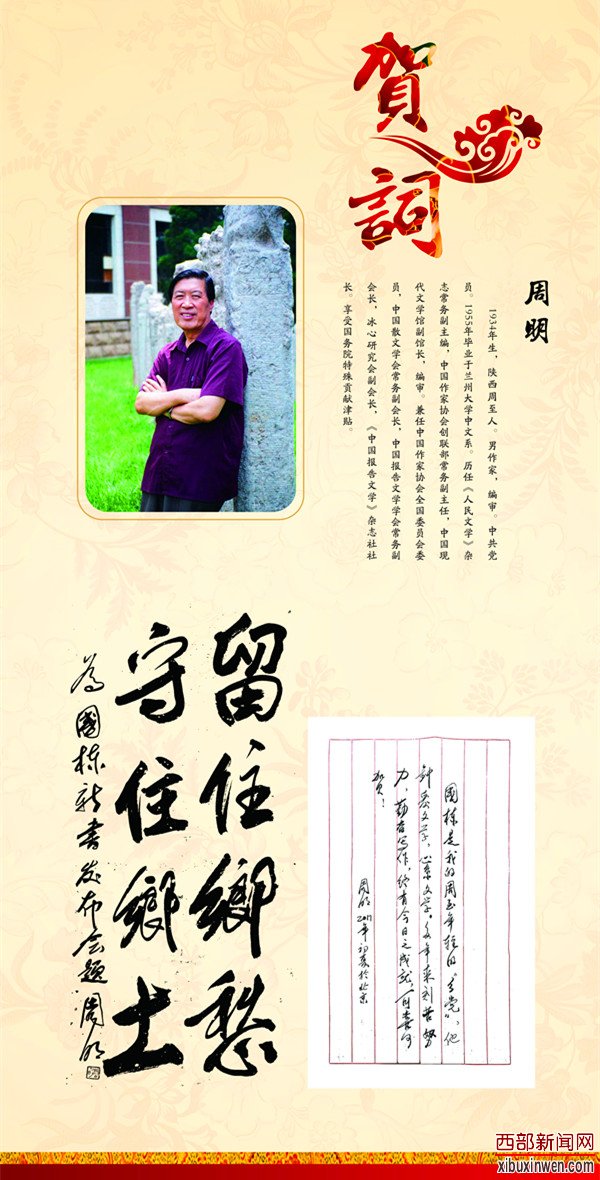 賀詞
周明
1934年生，陕西周至人。男作家，编审。中共党
员。1955年毕业于兰州大学中文系。历任《人民文学》杂
志常务副主编，中国作家协会创联部常务副主任，中国现
代文学馆副馆长，编审。兼任中国作家协会全国委员会委
员，中国散文学会常务副会长，中国报告文学学会常务副
会长，冰心研究会副会长，《中国报告文学》杂志社社
长。享受国务院特殊贡献津贴。
留住鄉愁
守住鄉土
为國栋新書发布会题 周明
國栋是我的周至年轻的“乡党”，他
酷爱文学，心系文学，多年来刻苦努
力，勤奋写作，终有今日之成就，可喜可
贺！
周明 2011年初夏於北京
西部新闻网
xibuxinwen.com